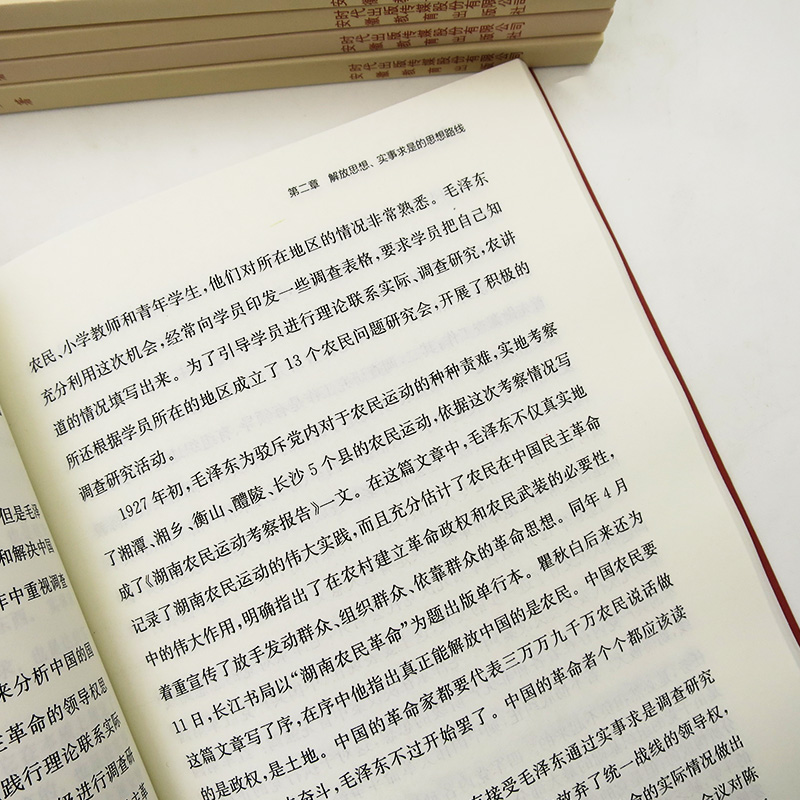 时代出版传媒股份有限公司
安徽教育出版社
时代出版传媒股份有限公司
安徽教育出版社
第二章 解放思想、实事求是的思想路线
农民、小学教师和青年学生，他们对所在地区的情况非常熟悉。毛泽东
充分利用这次机会，经常向学员印发一些调查表格，要求学员把自己知
道的情况填写出来。为了引导学员进行理论联系实际、调查研究，农讲
所还根据学员所在的地区成立了13个农民问题研究会，开展了积极的
调查研究活动。
1927年初，毛泽东为驳斥党内对于农民运动的种种责难，实地考察
了湘潭、湘乡、衡山、醴陵、长沙5个县的农民运动，依据这次考察情况写
成了《湖南农民运动考察报告》一文。在这篇文章中，毛泽东不仅真实地
记录了湖南农民运动的伟大实践，而且充分估计了农民在中国民主革命
中的伟大作用，明确指出了在农村建立革命政权和农民武装的必要性，
着重宣传了放手发动群众、组织群众、依靠群众的革命思想。同年4月
11日，长江书局以“湖南农民革命”为题出版单行本。瞿秋白后来还为
这篇文章写了序，在序中他指出真正能解放中国的是农民。中国农民要
的是政权，是土地。中国的革命家都要代表三万万九千万农民说话做
奋斗，毛泽东不过开始罢了。中国的革命者个个都应该读
接受毛泽东通过实事求是调查研究
放弃了统一战线的领导权，
的实际情况做出
会议对陈
但是毛泽
和解决中国
年中重视调查
来分析中国的国
主革命的领导权思
践行理论联系实际
进行调查研